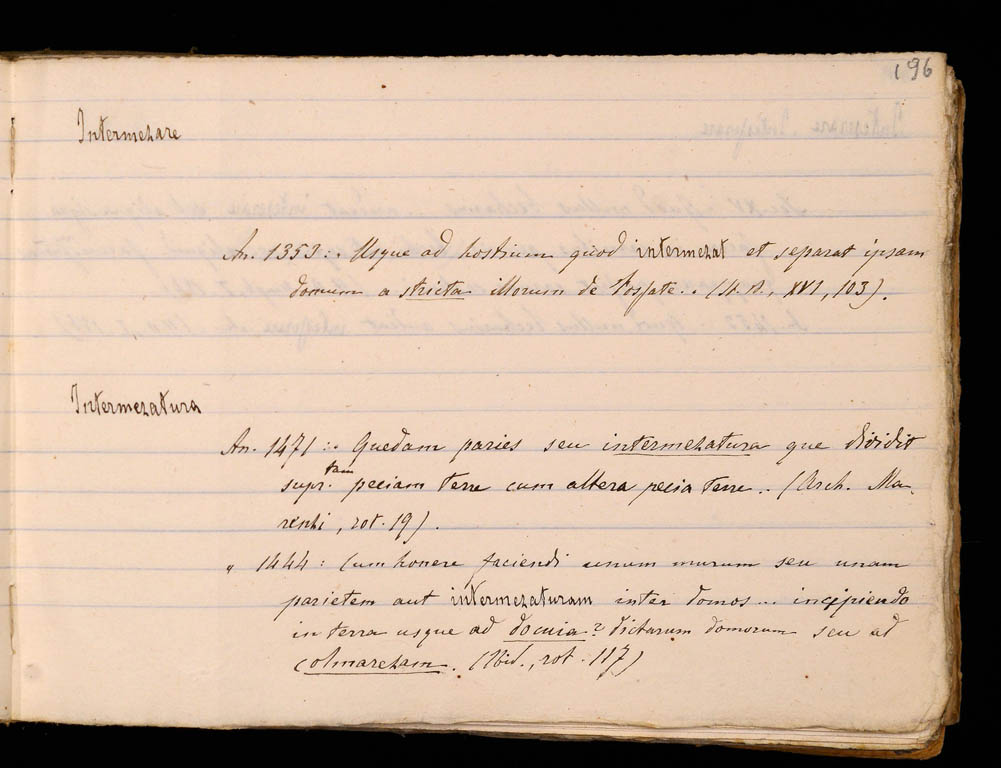 196
Intermezare
An. 1353: .. Usque ad hostium quod intermezat et separat ipsam
domum a stricta illorum de Fossate.. (S. A., XVI, 103).
Intermezatura
An. 1471: .. Quedam paries seu intermezatura que dividit
supr.tam peciam terre cum altera pecia terre .. (Arch. Ma-
renhi, rot. 19).
" 1444: Cum honere faciendi unum murum seu unam
parietem aut intermezaturam inter domos ... incipiendo
in terra usque ad docuia? dictarum domorum seu ad
colmarezam. (Ibid., rot. 117)